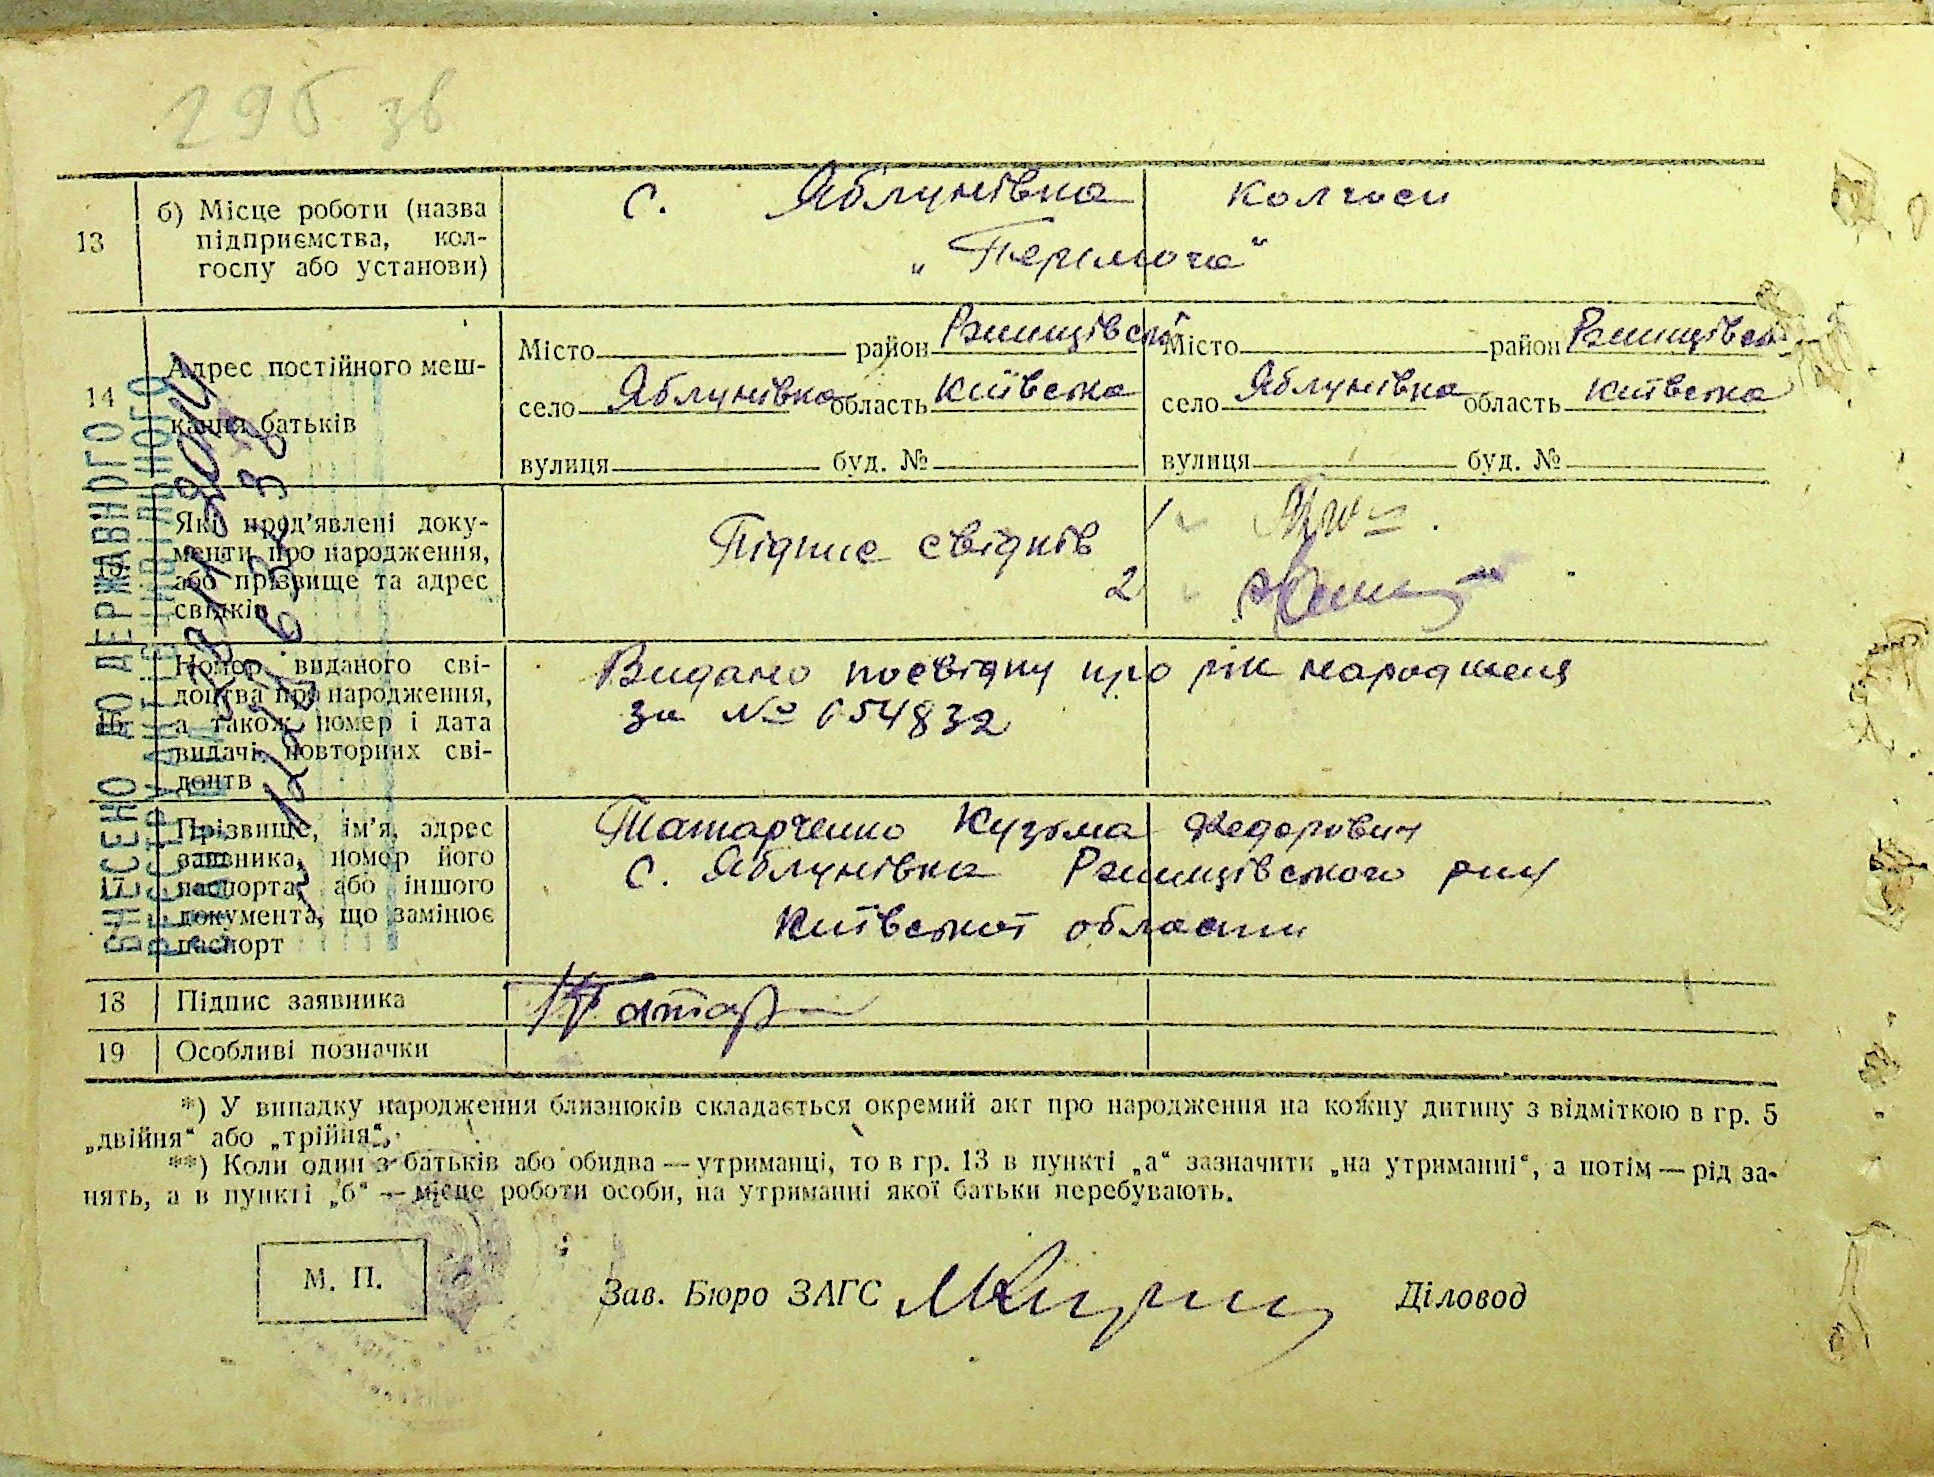 296 зв
13 б) Місце роботи (назва підприємства, колгоспу або установи) с. Яблунівка колгосп
„Перемога“
14 Адрес постійного мешкання батьків
Місто район Ржищівськ Місто район Ржищівськ
село Яблунівка область Київська село Яблунівка область Київська
вулиця буд. № вулиця буд. №
15 Які пред'явлені документи про народження, або прізвище та адрес свідків
Підпис свідків 1
2
16 Номер виданого свідоцтва про народження, а також номер і дата видачі повторних свідоцтв
Видано посвідку про рік народження
за № 054832
17 Прізвище, ім'я, адрес заявника, номер його паспорта або іншого документа, що замінює паспорт
Татарченко Кузьма Федорович
с. Яблунівка Ржищівського р-ну
Київської области
18 Підпис заявника КТатар
19 Особливі позначки
*) У випадку народження близнюків складається окремий акт про народження на кожну дитину з відміткою в гр. 5
„двійня“ або „трійня“.
**) Коли один з батьків або обидва — утриманці, то в гр. 13 в пункті „а“ зазначити „на утриманні“, а потім — рід за-
нять, а в пункті „б“ — місце роботи особи, на утриманні якої батьки перебувають.
М. П.
Зав. Бюро ЗАГС Діловод
ВНЕСЕНО ДО ДЕРЖАВНОГО
РЕЄСТРУ АКТІВ ЦИВІЛЬНОГО